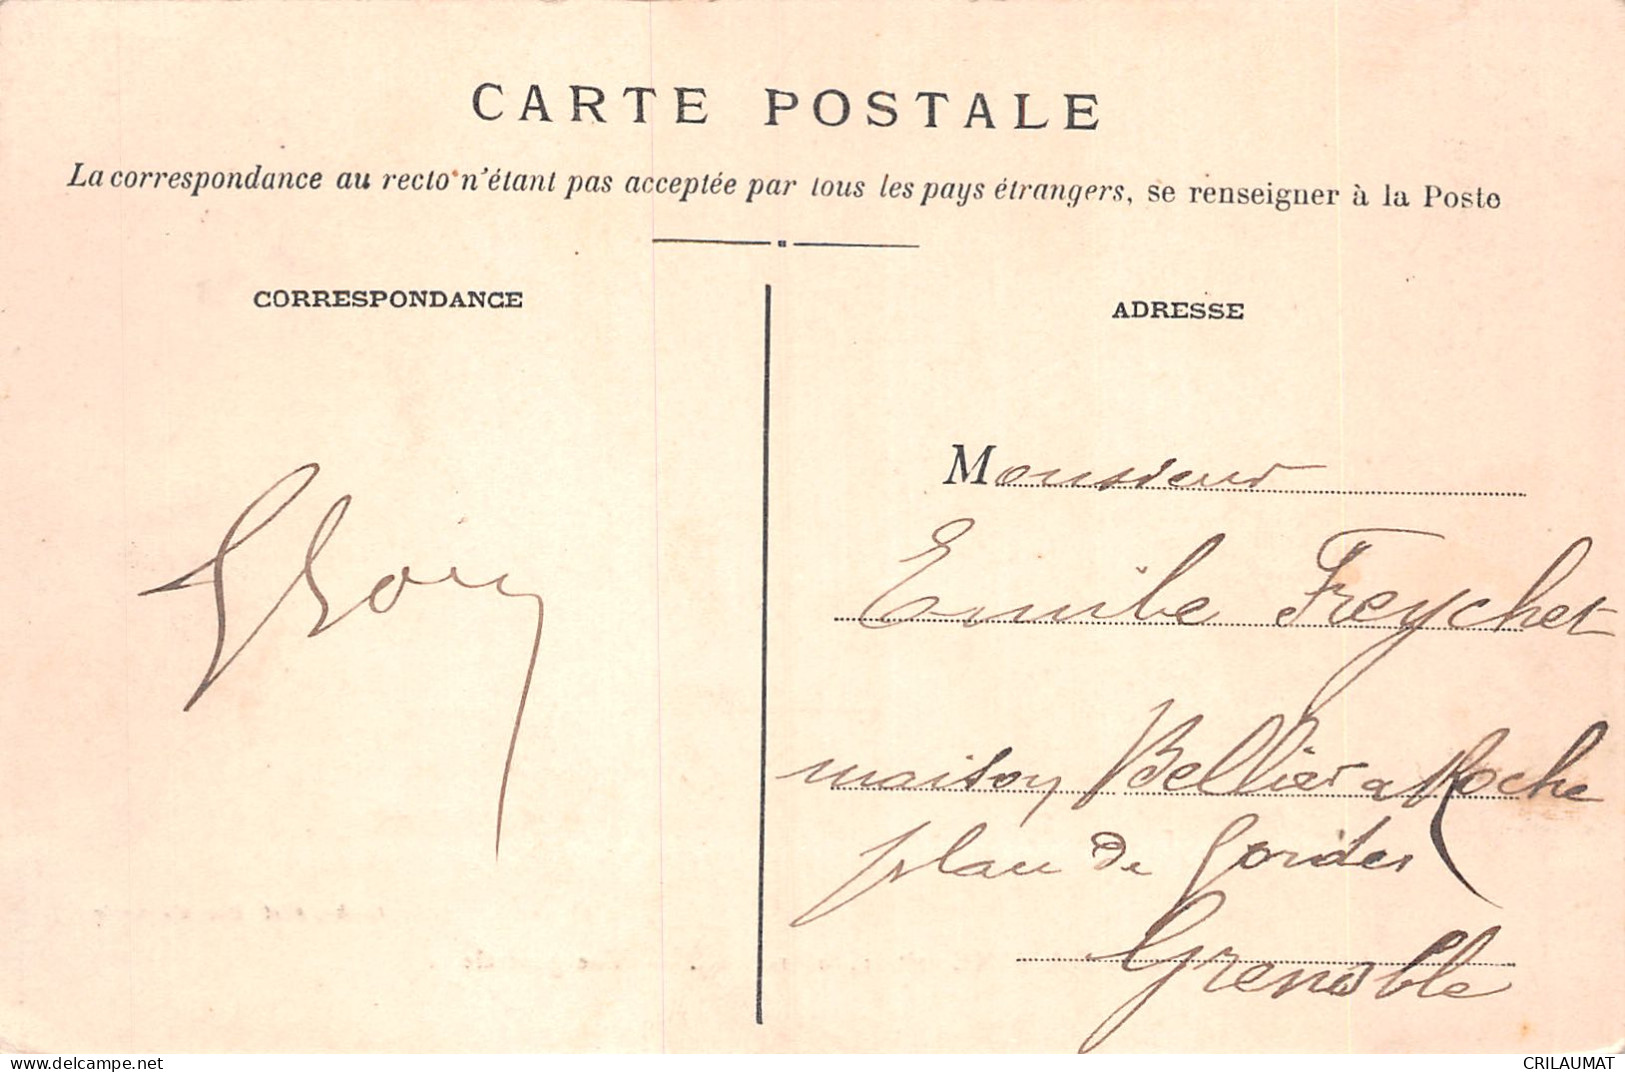 CARTE POSTALE
La correspondance au recto n'étant pas acceptée par tous les pays étrangers, se renseigner à la Poste
CORRESPONDANCE
ADRESSE
Monsieur
Emile Freychet
maison Bellier a Roche
plan de Gordes
Grenoble
CRILAUMAT